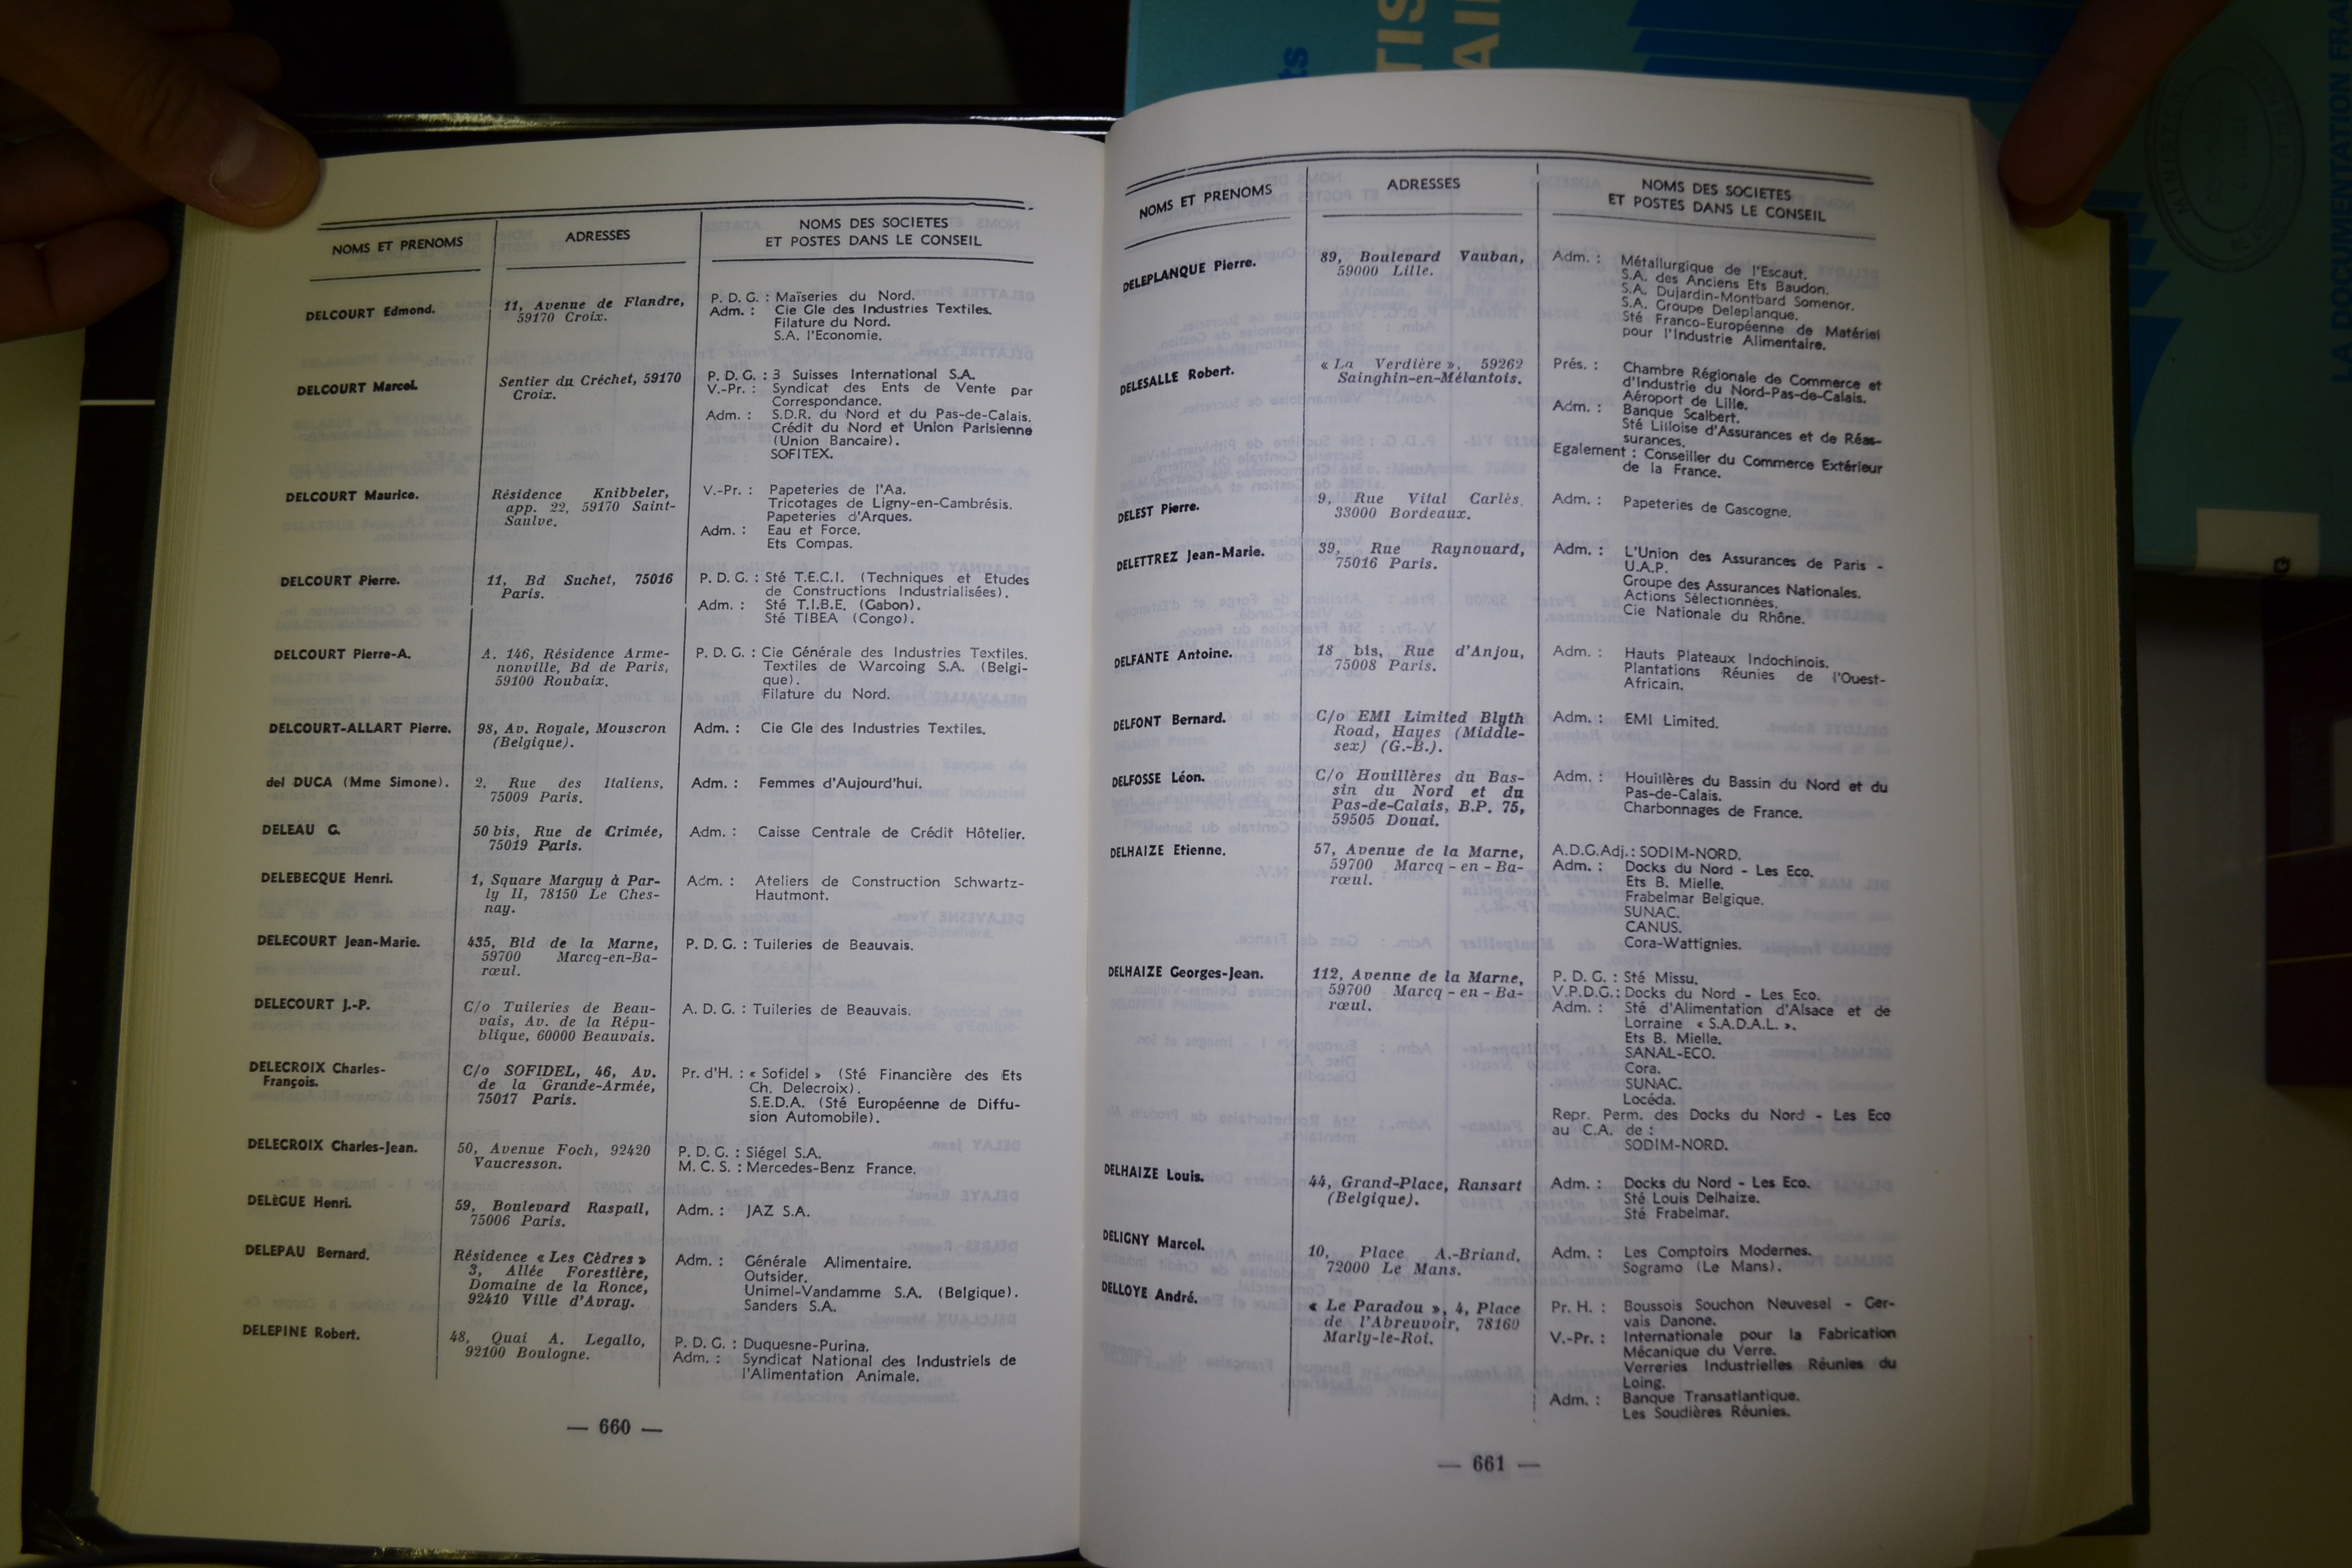 NOMS ET PRENOMS
ADRESSES
NOMS DES SOCIETES
ET POSTES DANS LE CONSEIL
DELCOURT Edmond.
11, Avenue de Flandre,
59170 Croix.
P. D. G. : Maïseries du Nord.
Adm. : Cie Gle des Industries Textiles.
Filature du Nord.
S.A. l'Economie.
DELCOURT Marcel.
Sentier du Créchet, 59170
Croix.
P. D. G. : 3 Suisses International S.A.
V.-Pr. : Syndicat des Ents de Vente par
Correspondance.
Adm. : S.D.R. du Nord et du Pas-de-Calais.
Crédit du Nord et Union Parisienne
(Union Bancaire).
SOFITEX.
DELCOURT Maurice.
Résidence Knibbeler,
app. 22, 59170 Saint-
Saulve.
V.-Pr. : Papeteries de l'Aa.
Tricotages de Ligny-en-Cambrésis.
Papeteries d'Arques.
Adm. : Eau et Force.
Ets Compas.
DELCOURT Pierre.
11, Bd Suchet, 75016
Paris.
P. D. G. : Sté T.E.C.I. (Techniques et Etudes
de Constructions Industrialisées).
Adm. : Sté T.I.B.E. (Gabon).
Sté TIBEA (Congo).
DELCOURT Pierre-A.
A. 146, Résidence Arme-
nonville, Bd de Paris,
59100 Roubaix.
P. D. G. : Cie Générale des Industries Textiles.
Textiles de Warcoing S.A. (Belgi-
que).
Filature du Nord.
DELCOURT-ALLART Pierre.
98, Av. Royale, Mouscron
(Belgique).
Adm. : Cie Gle des Industries Textiles.
del DUCA (Mme Simone).
2, Rue des Italiens,
75009 Paris.
Adm. : Femmes d'Aujourd'hui.
DELEAU G.
50 bis, Rue de Crimée,
75019 Paris.
Adm. : Caisse Centrale de Crédit Hôtelier.
DELEBECQUE Henri.
1, Square Marguy à Par-
ly II, 78150 Le Ches-
nay.
Adm. : Ateliers de Construction Schwartz-
Hautmont.
DELECOURT Jean-Marie.
435, Bld de la Marne,
59700 Marcq-en-Ba-
rœul.
P. D. G. : Tuileries de Beauvais.
DELECOURT J.-P.
C/o Tuileries de Beau-
vais, Av. de la Répu-
blique, 60000 Beauvais.
A. D. G. : Tuileries de Beauvais.
DELECROIX Charles-
François.
C/o SOFIDEL, 46, Av.
de la Grande-Armée,
75017 Paris.
Pr. d'H. : « Sofidel » (Sté Financière des Ets
Ch. Delecroix).
S.E.D.A. (Sté Européenne de Diffu-
sion Automobile).
DELECROIX Charles-Jean.
50, Avenue Foch, 92420
Vaucresson.
P. D. G. : Siégel S.A.
M. C. S. : Mercedes-Benz France.
DELèGUE Henri.
59, Boulevard Raspail,
75006 Paris.
Adm. : JAZ S.A.
DELEPAU Bernard.
Résidence « Les Cèdres »
3, Allée Forestière,
Domaine de la Ronce,
92410 Ville d'Avray.
Adm. : Générale Alimentaire.
Outsider.
Unimel-Vandamme S.A. (Belgique).
Sanders S.A.
DELEPINE Robert.
48, Quai A. Legallo,
92100 Boulogne.
P. D. G. : Duquesne-Purina.
Adm. : Syndicat National des Industriels de
l'Alimentation Animale.
— 660 —
NOMS ET PRENOMS
ADRESSES
NOMS DES SOCIETES
ET POSTES DANS LE CONSEIL
DELEPLANQUE Pierre.
89, Boulevard Vauban,
59000 Lille.
Adm. : Métallurgique de l'Escaut.
S.A. des Anciens Ets Baudon.
S.A. Dujardin-Montbard Somenor.
S.A. Groupe Deleplanque.
Sté Franco-Européenne de Matériel
pour l'Industrie Alimentaire.
DELESALLE Robert.
« La Verdière », 59262
Sainghin-en-Mélantois.
Prés. : Chambre Régionale de Commerce et
d'Industrie du Nord-Pas-de-Calais.
Aéroport de Lille.
Adm. : Banque Scalbert.
Sté Lilloise d'Assurances et de Réas-
surances.
Egalement : Conseiller du Commerce Extérieur
de la France.
DELEST Pierre.
9, Rue Vital Carlès,
33000 Bordeaux.
Adm. : Papeteries de Gascogne.
DELETTREZ Jean-Marie.
39, Rue Raynouard,
75016 Paris.
Adm. : L'Union des Assurances de Paris -
U.A.P.
Groupe des Assurances Nationales.
Actions Sélectionnées.
Cie Nationale du Rhône.
DELFANTE Antoine.
18 bis, Rue d'Anjou,
75008 Paris.
Adm. : Hauts Plateaux Indochinois.
Plantations Réunies de l'Ouest-
Africain.
DELFONT Bernard.
C/o EMI Limited Blyth
Road, Hayes (Middle-
sex) (G.-B.).
Adm. : EMI Limited.
DELFOSSE Léon.
C/o Houillères du Bas-
sin du Nord et du
Pas-de-Calais, B.P. 75,
59505 Douai.
Adm. : Houillères du Bassin du Nord et du
Pas-de-Calais.
Charbonnages de France.
DELHAIZE Etienne.
57, Avenue de la Marne,
59700 Marcq - en - Ba-
rœul.
A.D.G.Adj. : SODIM-NORD.
Adm. : Docks du Nord - Les Eco.
Ets B. Mielle.
Frabelmar Belgique.
SUNAC.
CANUS.
Cora-Wattignies.
DELHAIZE Georges-Jean.
112, Avenue de la Marne,
59700 Marcq - en - Ba-
rœul.
P. D. G. : Sté Missu.
V.P.D.G. : Docks du Nord - Les Eco.
Adm. : Sté d'Alimentation d'Alsace et de
Lorraine « S.A.D.A.L. ».
Ets B. Mielle.
SANAL-ECO.
Cora.
SUNAC.
Locéda.
Repr. Perm. des Docks du Nord - Les Eco
au C.A. de :
SODIM-NORD.
DELHAIZE Louis.
44, Grand-Place, Ransart
(Belgique).
Adm. : Docks du Nord - Les Eco.
Sté Louis Delhaize.
Sté Frabelmar.
DELIGNY Marcel.
10, Place A.-Briand,
72000 Le Mans.
Adm. : Les Comptoirs Modernes.
Sogramo (Le Mans).
DELLOYE André.
« Le Paradou », 4, Place
de l'Abreuvoir, 78160
Marly-le-Roi.
Pr. H. : Boussois Souchon Neuvesel - Ger-
vais Danone.
V.-Pr. : Internationale pour la Fabrication
Mécanique du Verre.
Verreries Industrielles Réunies du
Loing.
Adm. : Banque Transatlantique.
Les Soudières Réunies.
— 661 —